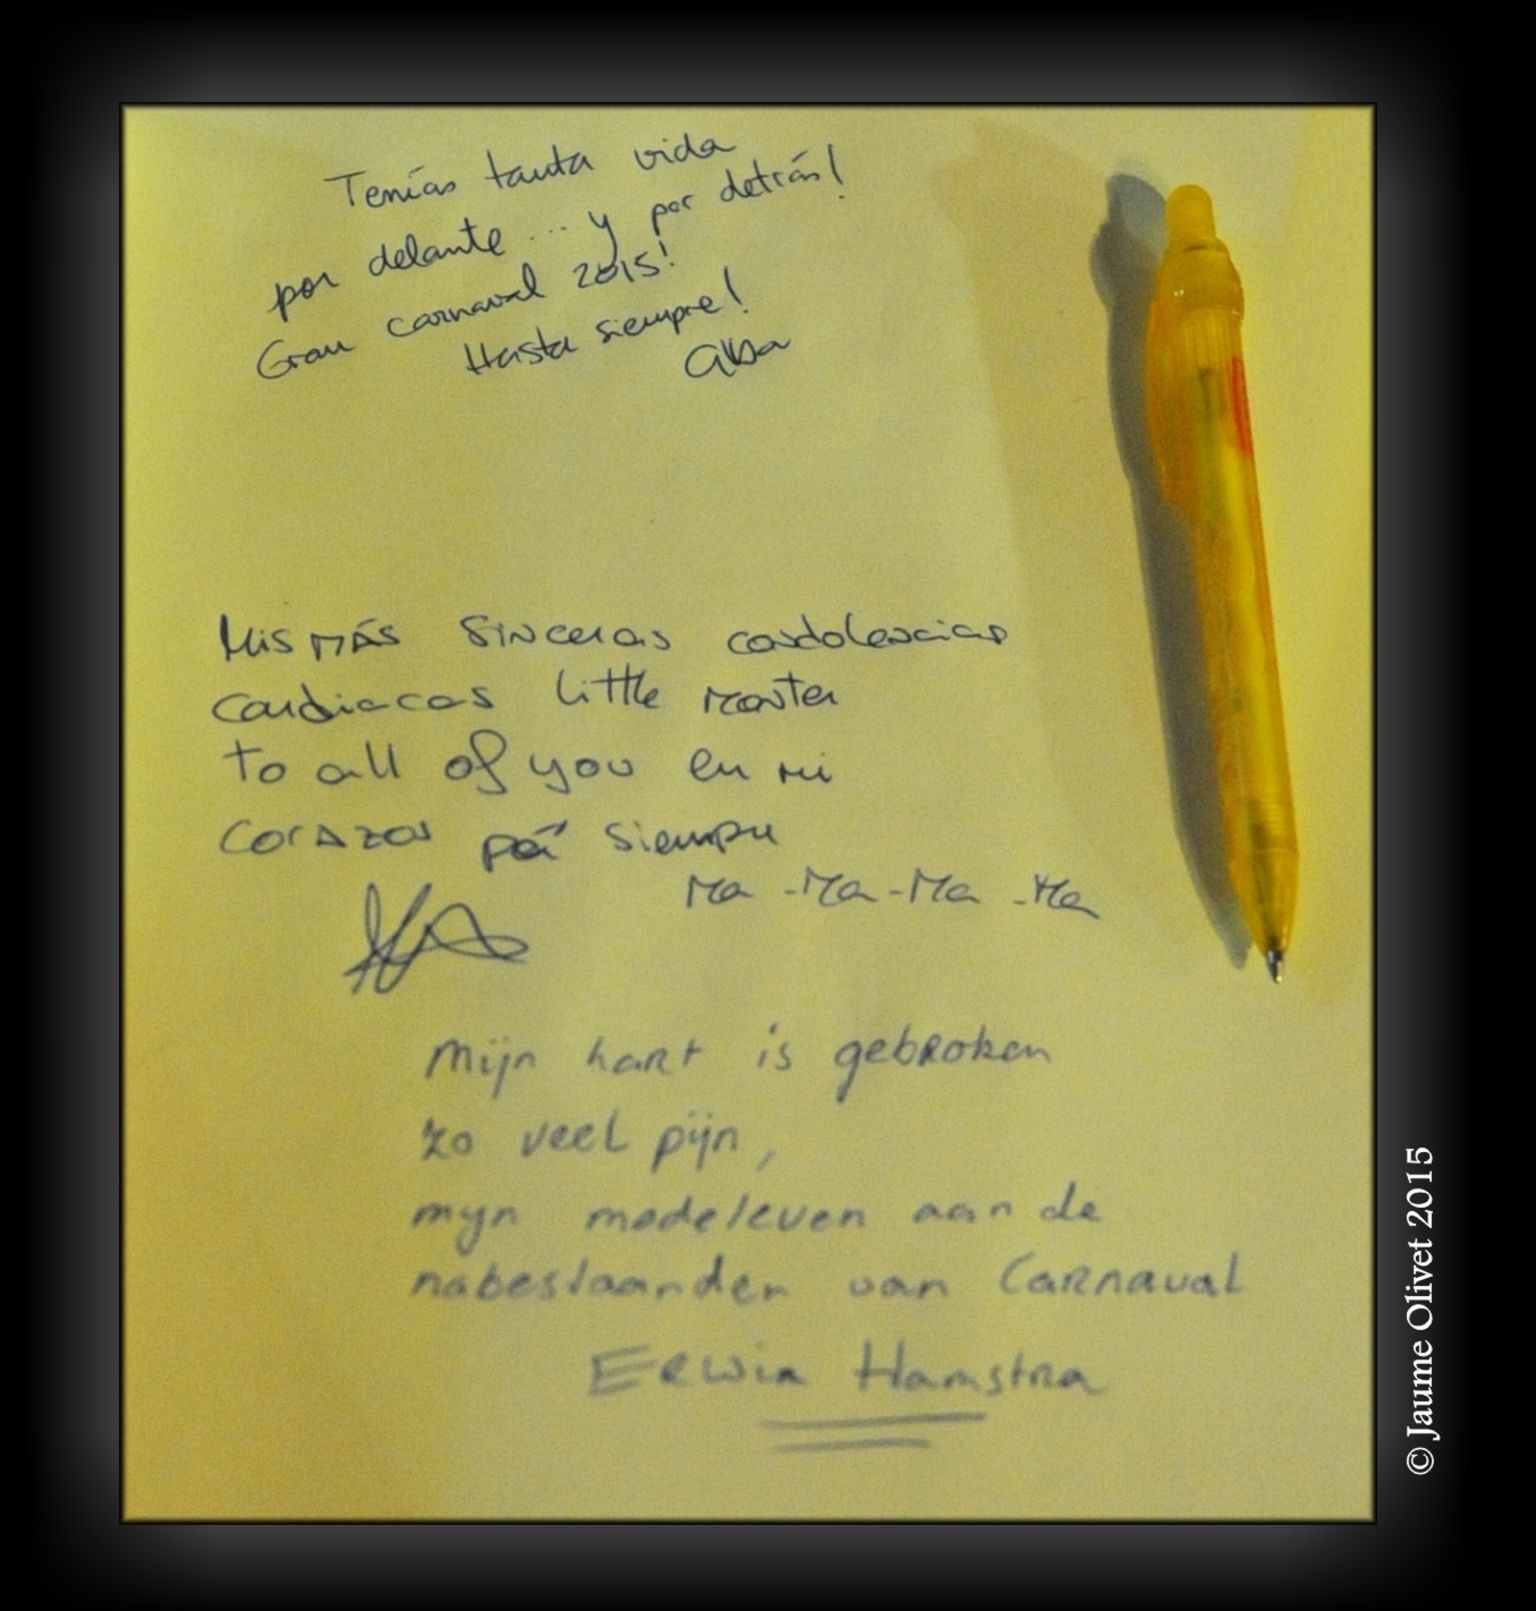 Tenías tanta vida
por delante ... y por detrás!
Gran carnaval 2015!
Hasta siempre!
Alba
Mis más sinceras condolencias
cardiacas little monster
to all of you en mi
corazon pá siempre
Ma - Ma - Ma - Ma
Mijn hart is gebroken
zo veel pijn,
mijn medeleven aan de
nabestaanden van Carnaval
Erwin Hamstra
© Jaume Olivet 2015